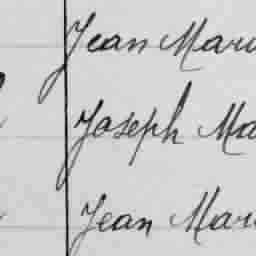 Jean Mari
Joseph Ma
Jean Mari